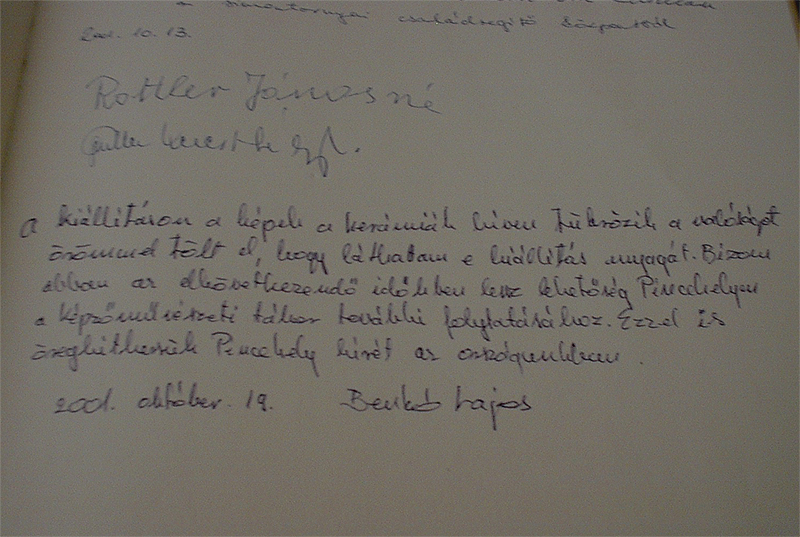 a simontornyai családsegítő központtól
2001. 10. 13.
Rottler Jánosné
A kiállításon a képek a kerámiák híven tükrözik a valóságot
örömmel tölt el, hogy láthatam e kiállítás anyagát. Bizom
abban az elkövetkezendő időkben lesz lehetőség Pincehelyen
a képzőművészeti tábor további folytatásához. Ezzel is
öregbíthessük Pincehely hírét az országunkban.
2001. október. 19. Benkó Lajos